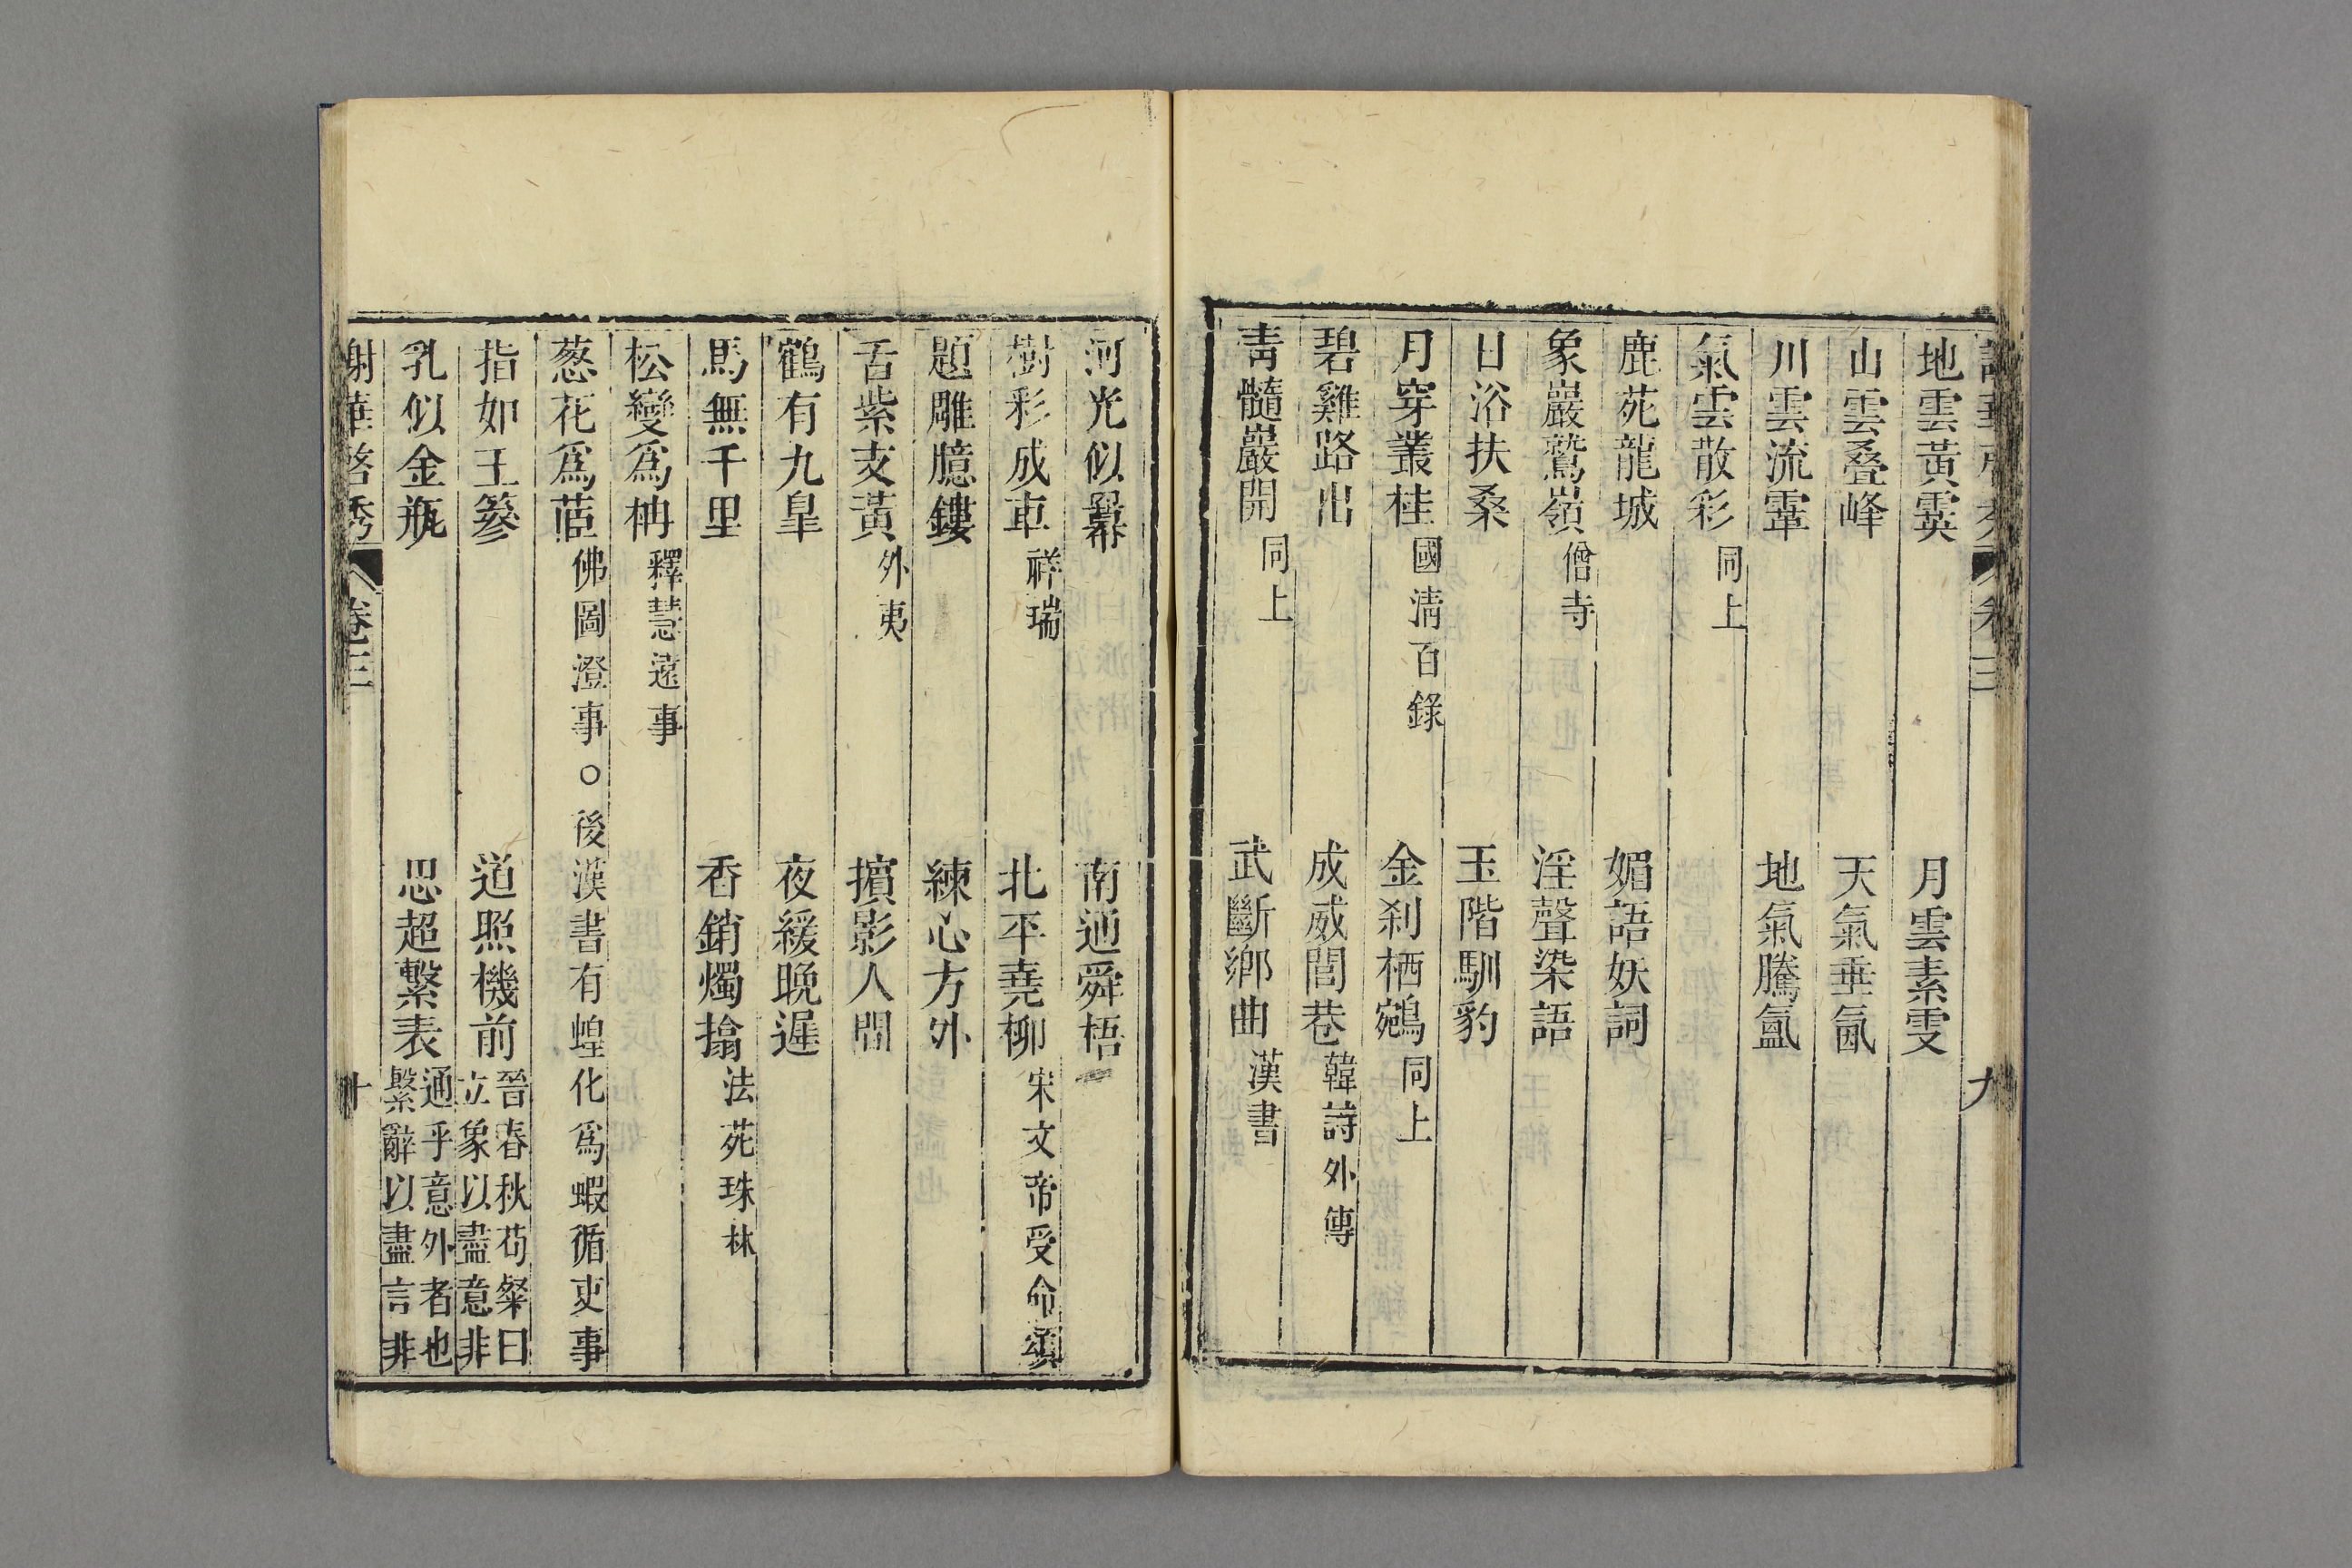 卷三 九
地雲黃霙 月雲素雯
山雲叠峰 天氣垂氤
川雲流霏 地氣騰氳
氣雲散彩 同上
鹿苑龍城 媚語妖詞
象巖鷲嶺 僧寺 淫聲染語
日浴扶桑 玉階馴豹
月穿叢桂 國淸百錄 金刹栖鵷 同上
碧雞路出 成威閭巷 韓詩外傳
靑髓巖開 同上 武斷鄉曲 漢書
河光似羃 南通舜梧
樹彩成車 祥瑞 北平堯柳 宋文帝受命頌
題雕臆鏤 練心方外
舌紫支黃 外夷 擯影人間
鶴有九臯 夜緩晩遲
馬無千里 香銷燭搚 法苑珠林
松變爲柟 釋慧遠事
葱花爲茝 佛圖澄事○後漢書有蝗化爲蝦循吏事
指如玉篸 道照機前 晉春秋荀粲曰立象以盡意非
乳似金瓶 思超繫表 通乎意外者也繫辭以盡言非
謝華啓秀 卷三 十